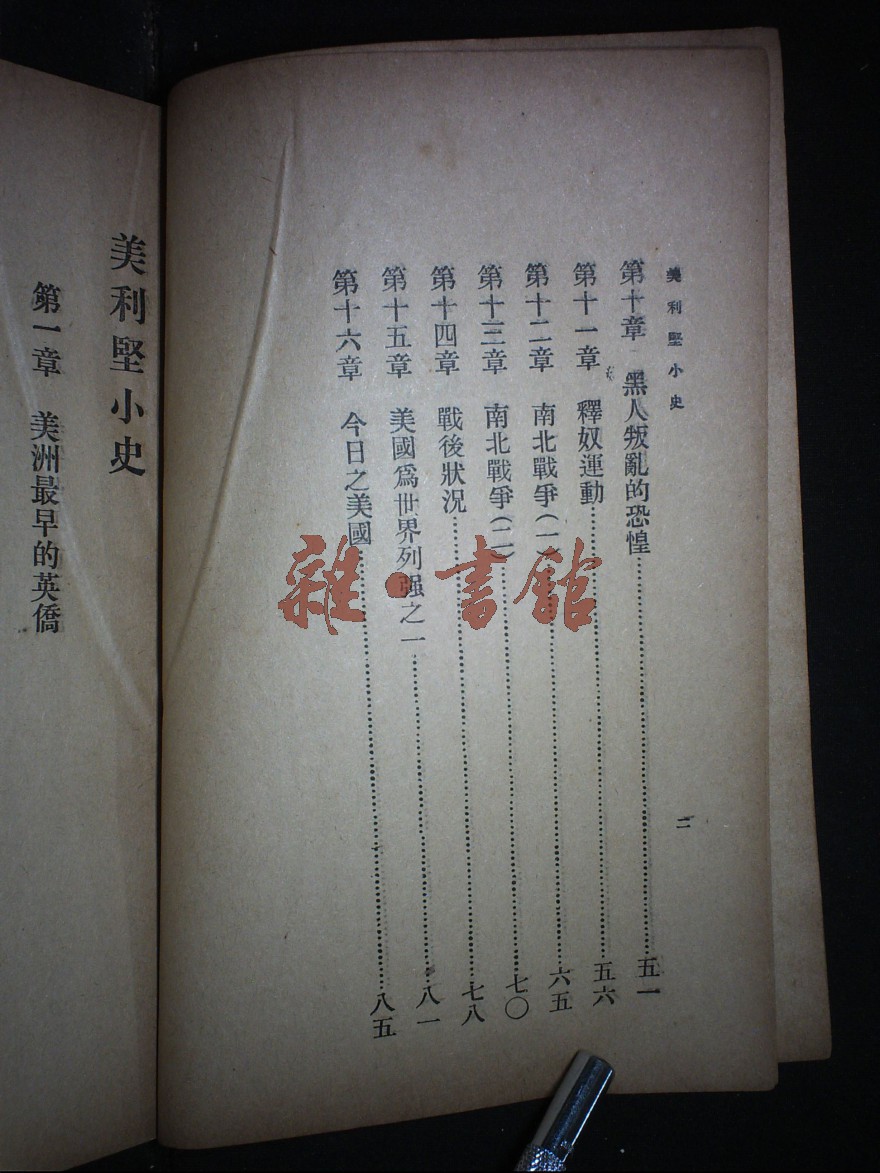 美利堅小史
二
第十章 黑人叛亂的恐惶 五一
第十一章 釋奴運動 五六
第十二章 南北戰爭(一) 六五
第十三章 南北戰爭(二) 七〇
第十四章 戰後狀况 七八
第十五章 美國爲世界列强之一 八一
第十六章 今日之美國 八五
美利堅小史
第一章 美洲最早的英僑
雜·書館